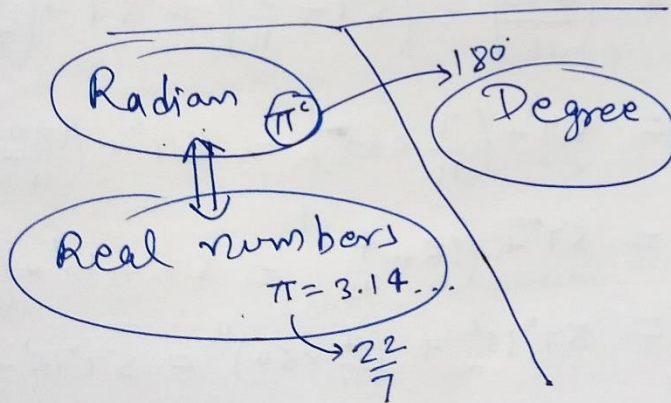 Radian πᶜ
180°
Degree
Real numbers
π = 3.14...
22/7